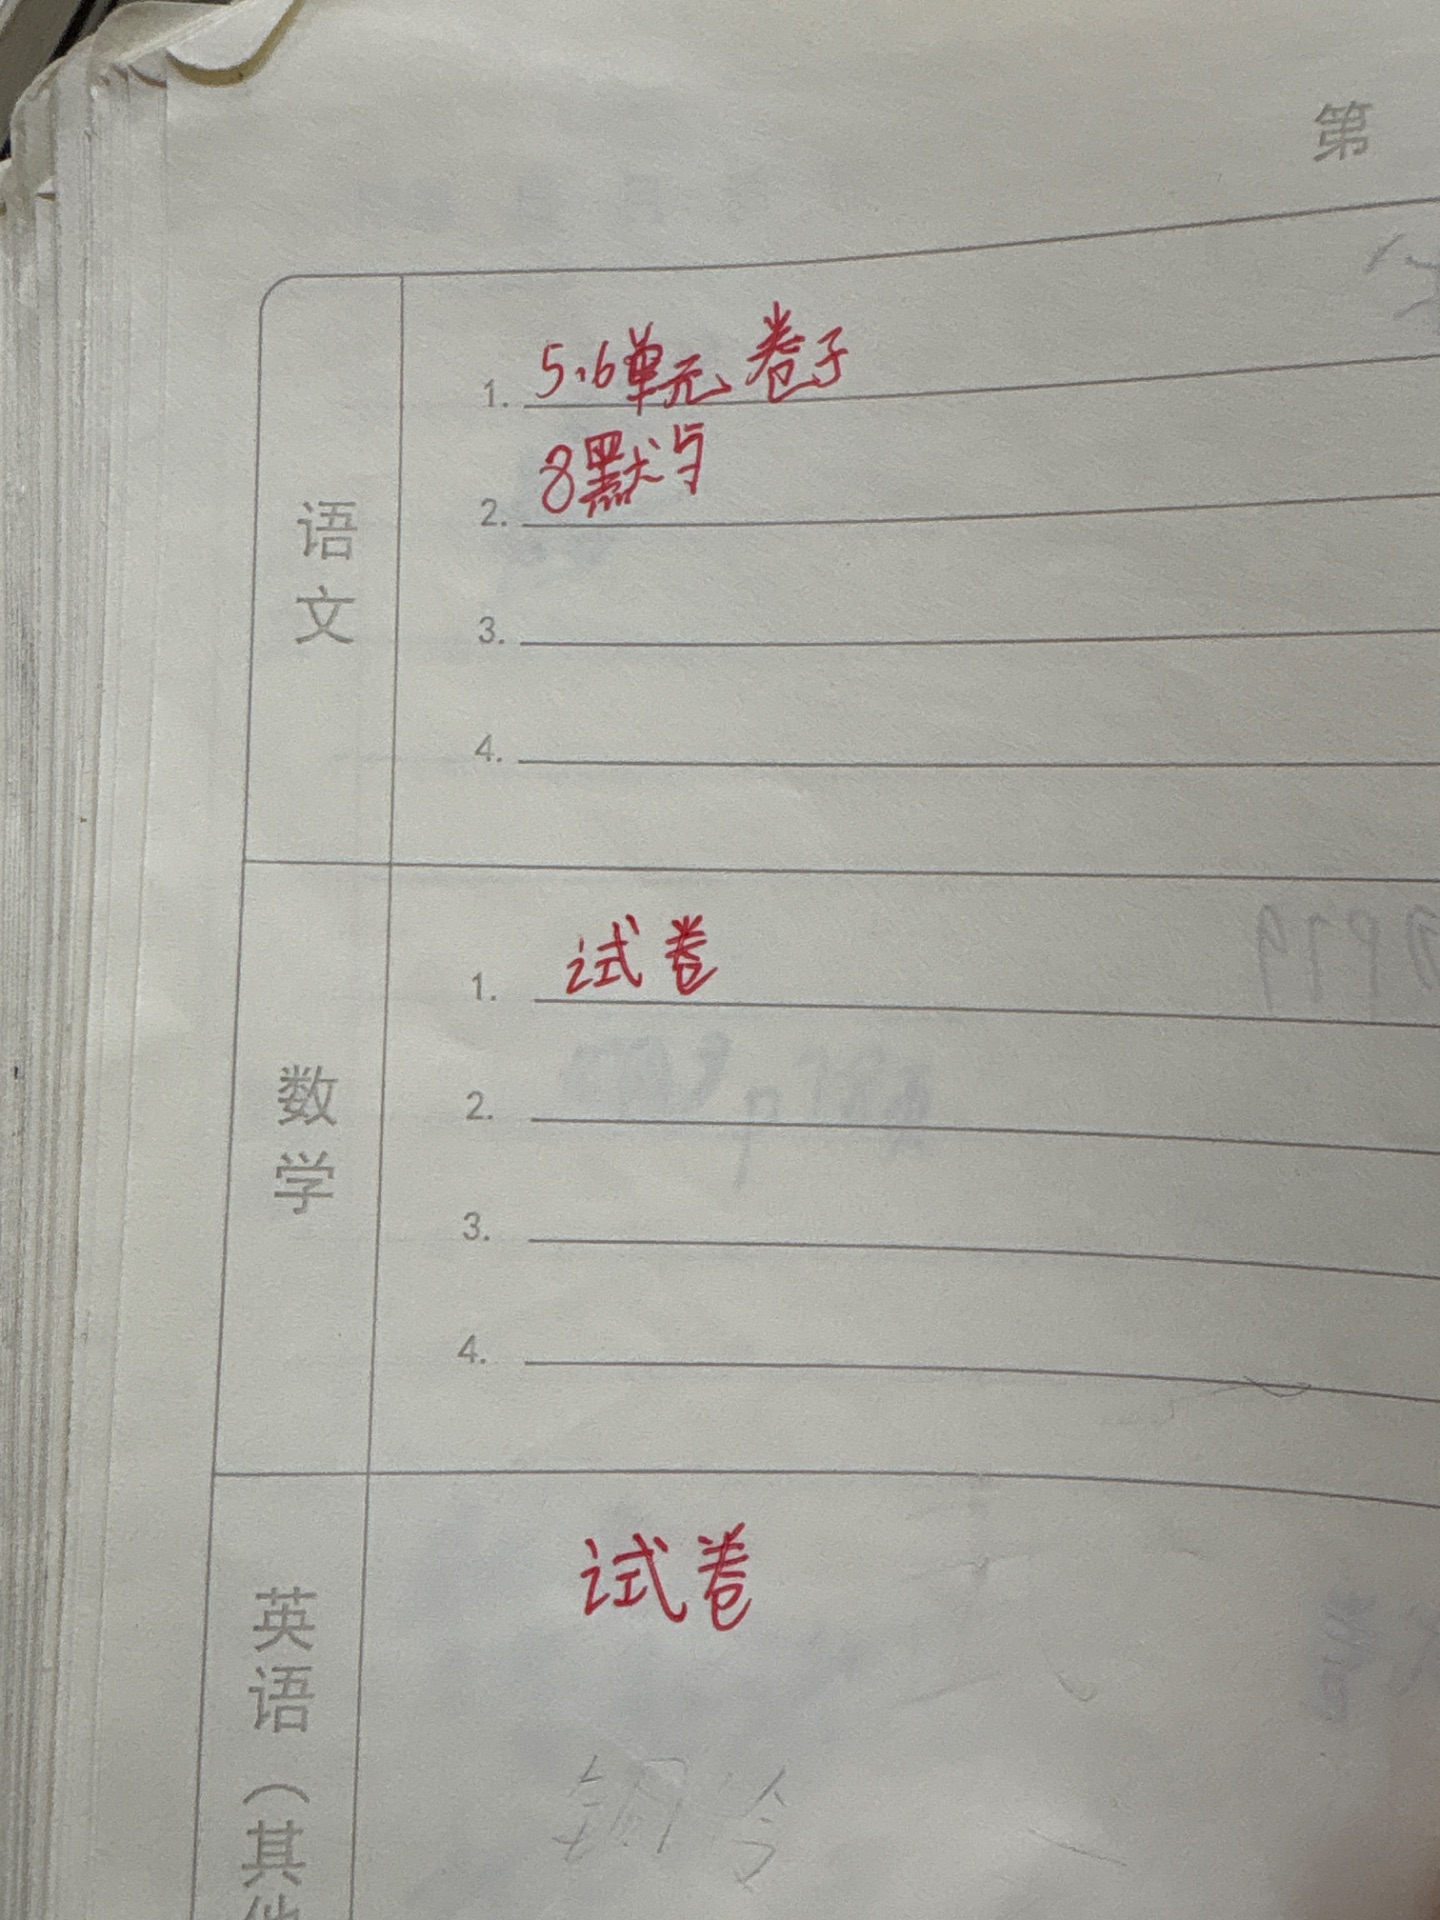 第
语文
1. 5.6单元卷子
2. 8默写
3.
4.
数学
1. 试卷
2.
3.
4.
英语（其他
试卷